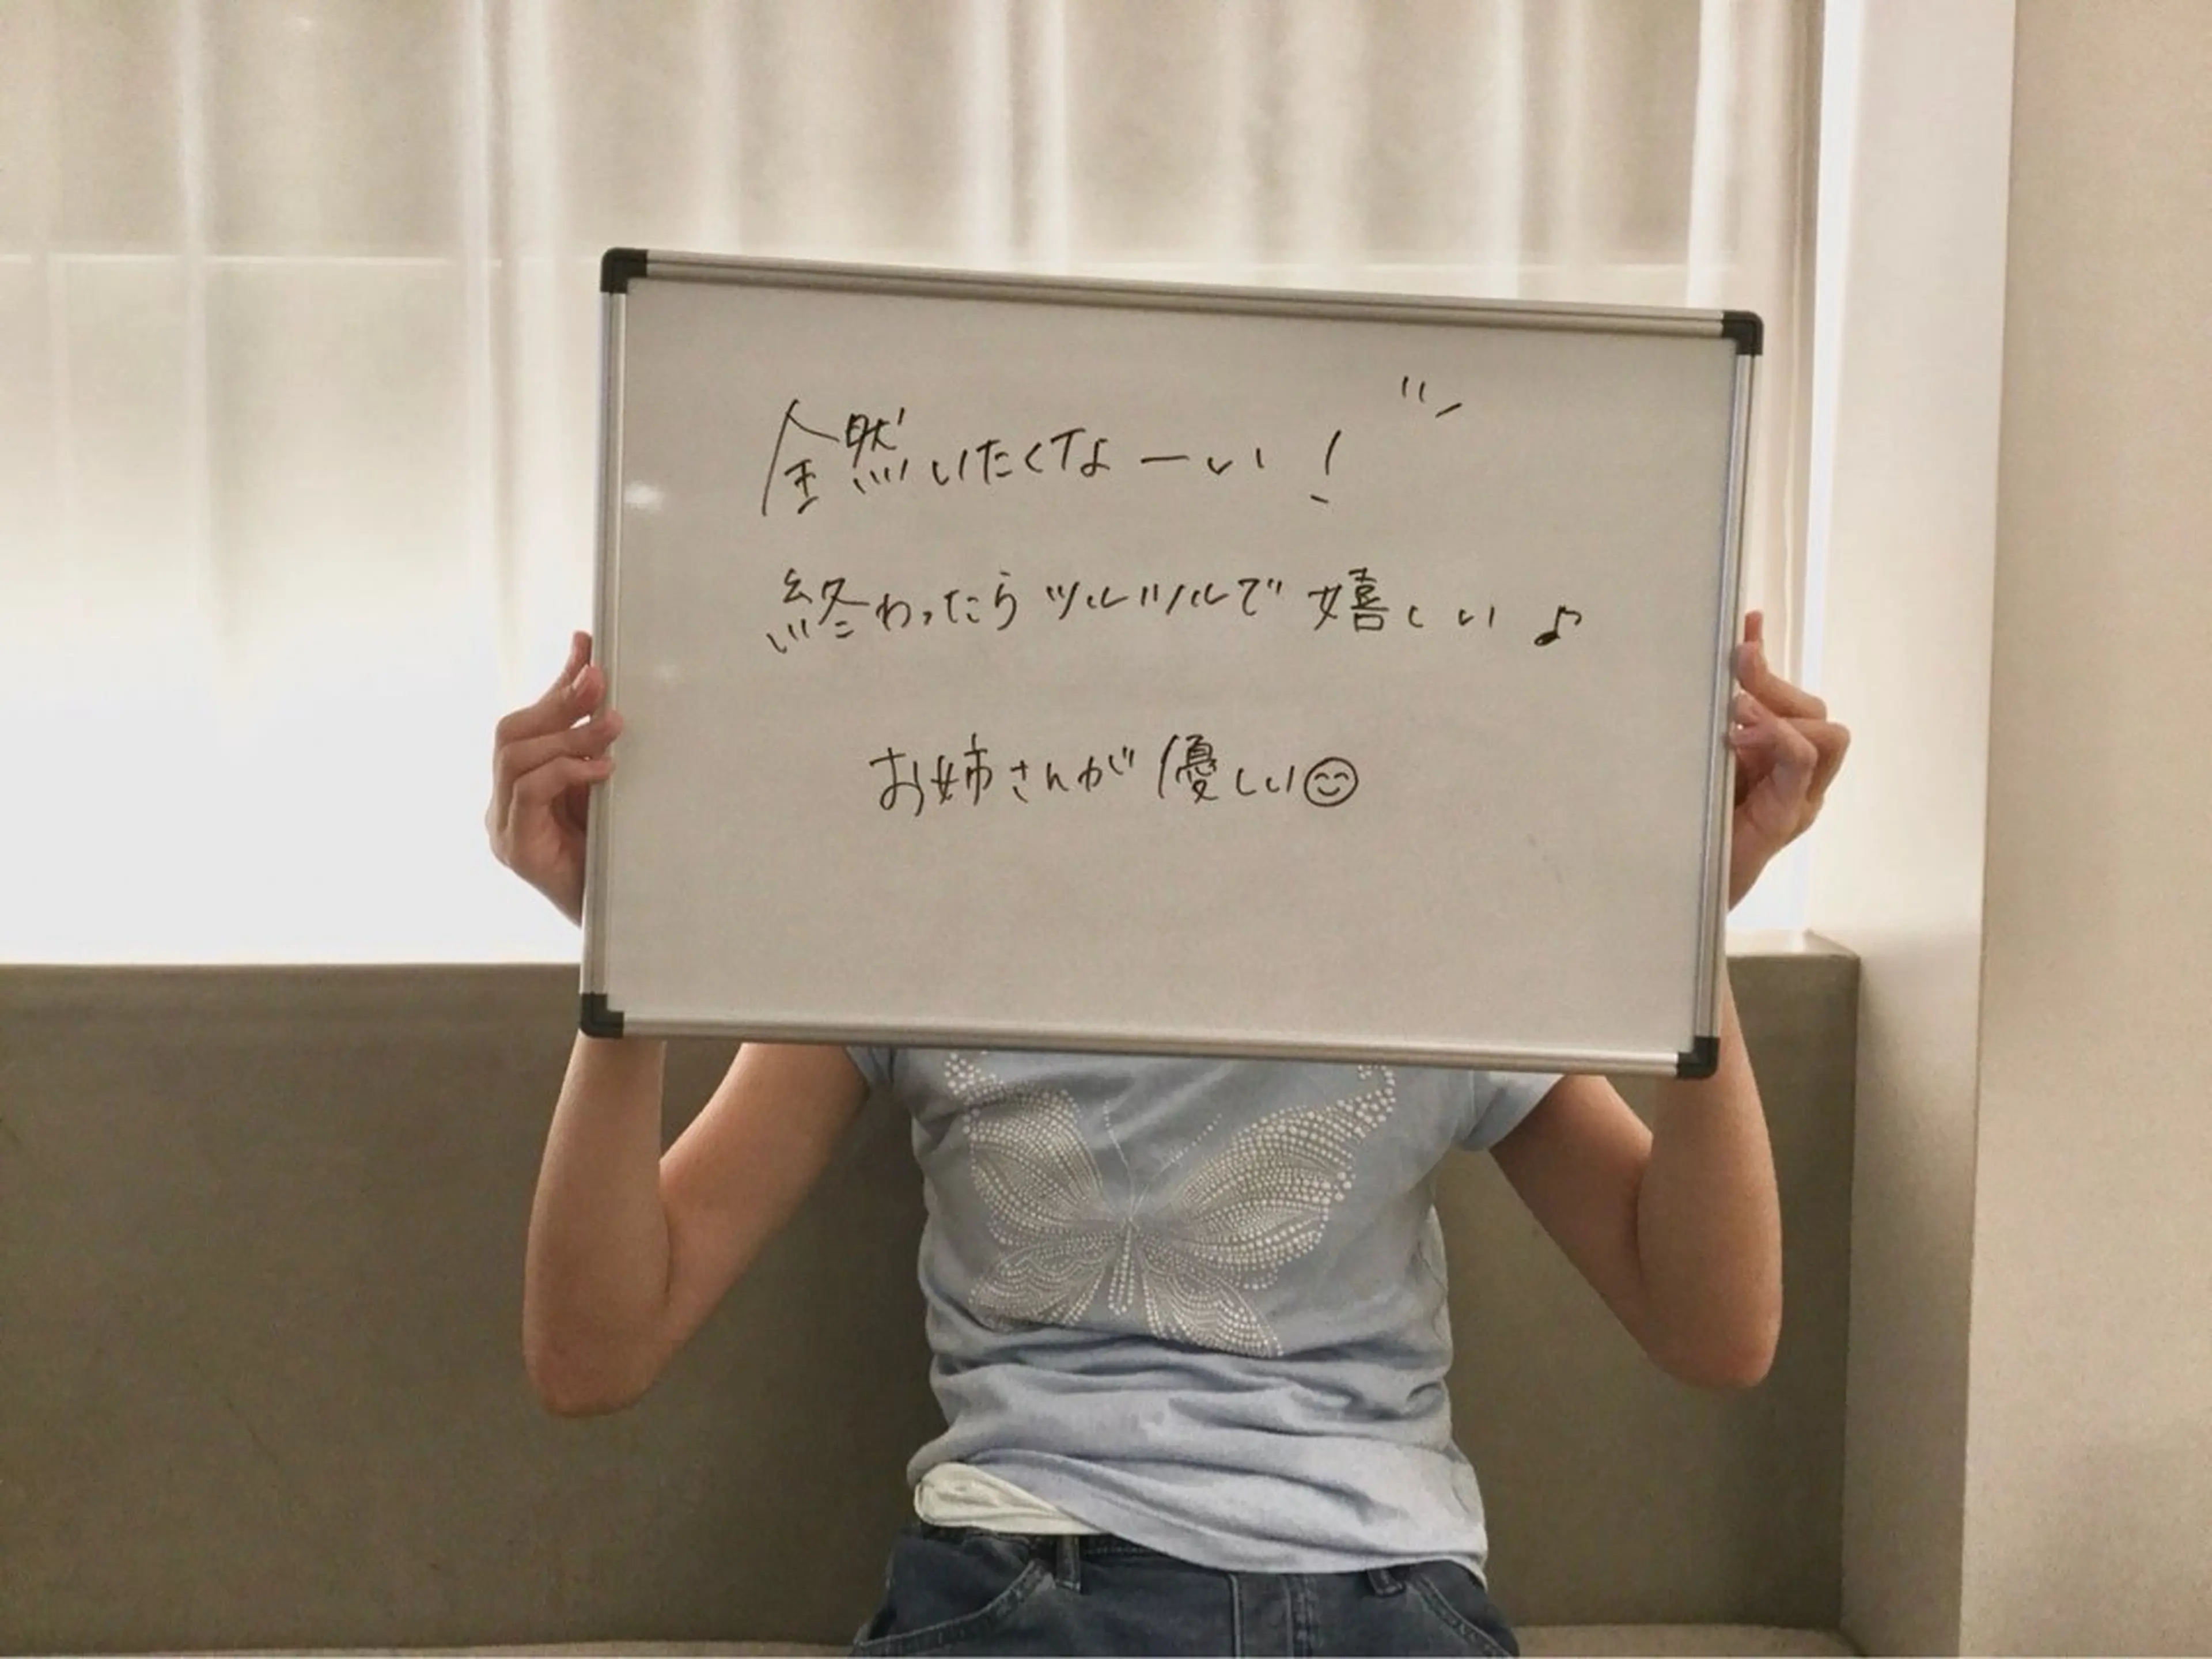 全然いたくなーい！
終わったらツルツルで嬉しい♪
お姉さんが優しい😊